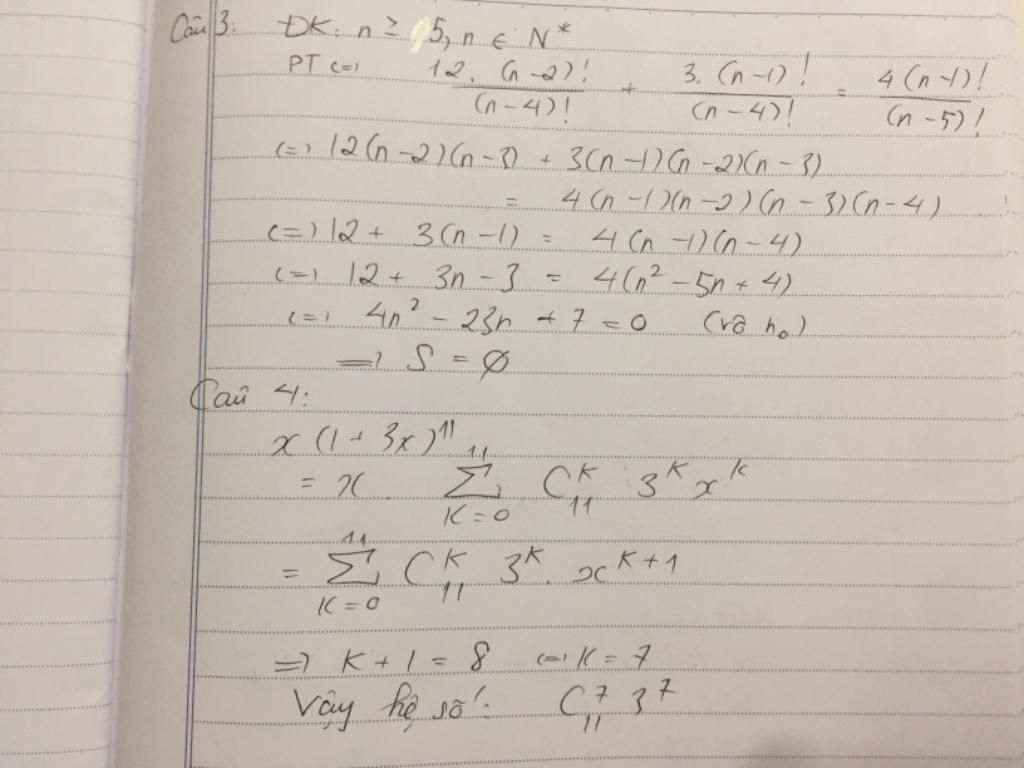 Câu 3: ĐK: n ≥ 5, n ∈ N*
PT (=) 12.(n-2)!/(n-4)! + 3.(n-1)!/(n-4)! = 4(n-1)!/(n-5)!
(=) 12(n-2)(n-3) + 3(n-1)(n-2)(n-3)
= 4(n-1)(n-2)(n-3)(n-4)
(=) 12 + 3(n-1) = 4(n-1)(n-4)
(=) 12 + 3n - 3 = 4(n² - 5n + 4)
(=) 4n² - 23n + 7 = 0 (vô no)
=) S = ∅
Câu 4:
x(1+3x)^11
= x. ∑_{K=0}^{11} C_{11}^{K} 3^K x^K
= ∑_{K=0}^{11} C_{11}^{K} 3^K. x^{K+1}
=) K+1 = 8 (=) K = 7
Vậy hệ số: C_{11}^{7} 3^7